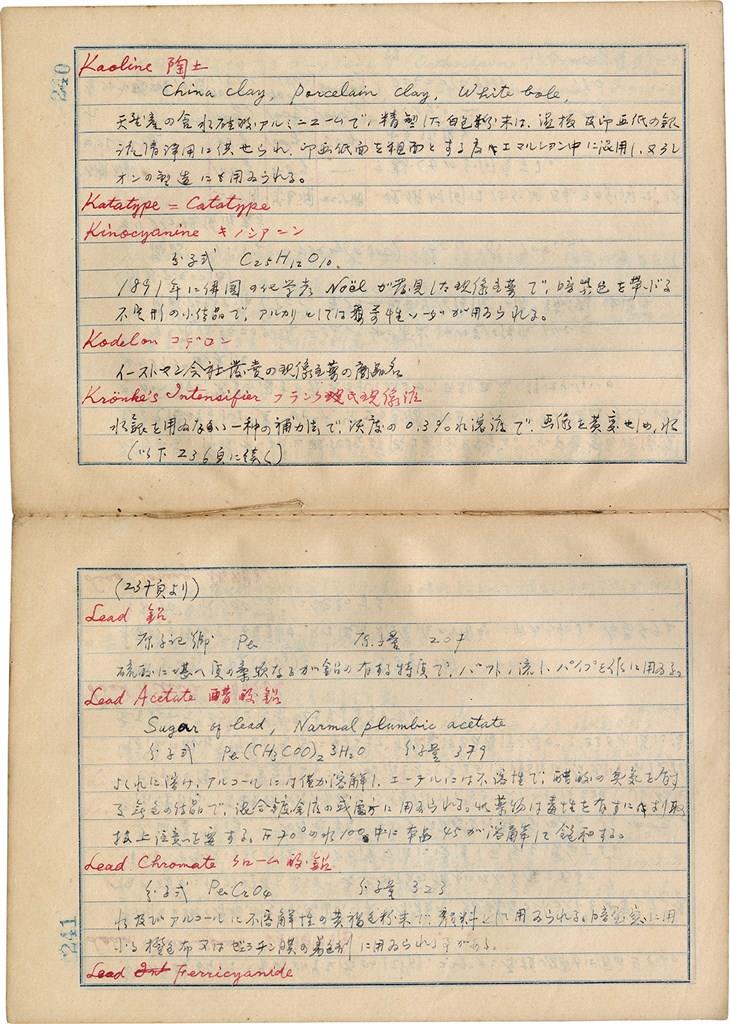 240
Kaoline 陶土
China clay, Porcelain clay, White bole,
天然産の含水硅酸アルミニユームで、精製した白色粉末は、湿板及印画紙の銀
液清浄用に供せられ、印画紙面を粗面とする為エマルシヨン中に混用し、又
オンの製造にも用ゐられる。
Katatype = Catatype
Kinocyanine キノシアニン
分子式 C25H12O10.
1891年に佛国の化学者 Noël が発見した現像主薬で、暗紫色を帯びたる
不定形の小結晶で、アルカリとしては苛性ソーダが用ゐられる。
Kodelon コデロン
イーストマン会社発賣の現像主薬の商品名
Krönke's Intensifier 氏現像液
水銀を用ゐない一種の補力法で、濃度の 0.3% 水溶液で、画像を黄変せしめ、次
(以下 236頁に続く)
(237頁より)
Lead 鉛
原子記号 Pe 原子量 207
硫酸に堪へ質の柔軟なるが鉛の有する特質で、バット、流し、パイプを作に用ゐる。
Lead Acetate 醋酸鉛
Sugar of lead, Normal plumbic acetate
分子式 Pe(CH3COO)2 3H2O 分子量 379
よく水に溶け、アルコールには僅か溶解し、エーテルには不溶性で、醋酸の臭気を有す
る無色の結晶で、混合鍍金液の或るものに用ゐられる。此薬物は毒性を有するにより取
扱上注意を要する。
Lead Chromate クローム酸鉛
分子式 PeCrO4 分子量 323
水及びアルコールに不溶解性の黄褐色粉末で顔料として用ゐられる。暗室窓に用
ふる橙色布又はゼラチン膜の着色剤に用ゐられる事がある。
Lead Ferricyanide
241